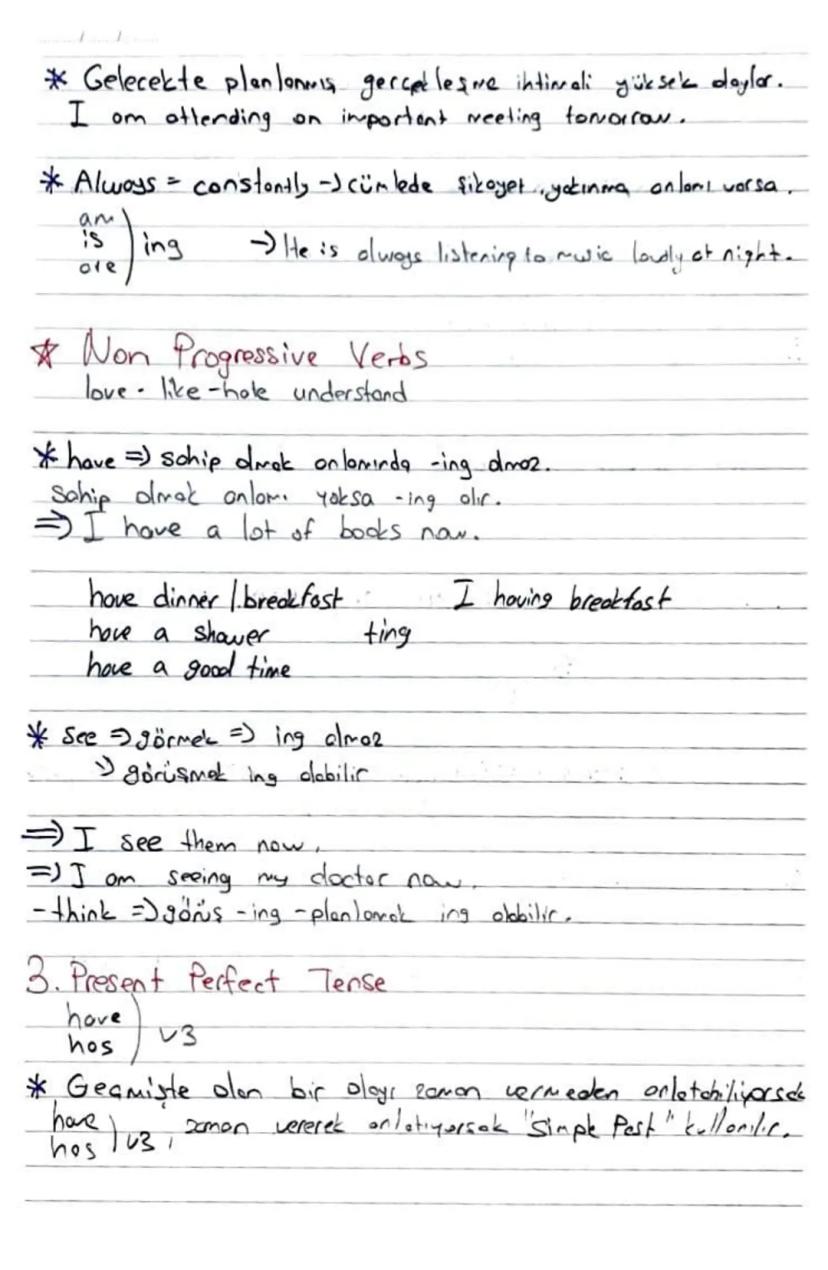 * Gelecekte planlanmış gerçekleşme ihtimali yüksek olaylar.
I am attending an important meeting tomorrow.
* Always = constantly -> cümlede şikayet, yakınma anlamı varsa.
am
is ) ing -> He is always listening to music loudly at night.
are
* Non Progressive Verbs
love - like - hate understand
* have => sahip olmak anlamında -ing almaz.
Sahip olmak anlamı yoksa -ing alır.
=> I have a lot of books now.
have dinner /.breakfast I having breakfast
have a shower ting
have a good time
* See => görmek => ing almaz
görüşmek ing alabilir
=> I see them now.
=> I am seeing my doctor now.
- think => görüş -ing -planlamak ing alabilir.
3. Present Perfect Tense
have
has ) v3
* Geçmişte olan bir olayı zaman vermeden anlatabiliyorsak
have
has ) v3, zaman vererek anlatıyorsak "Simple Past" kullanılır.